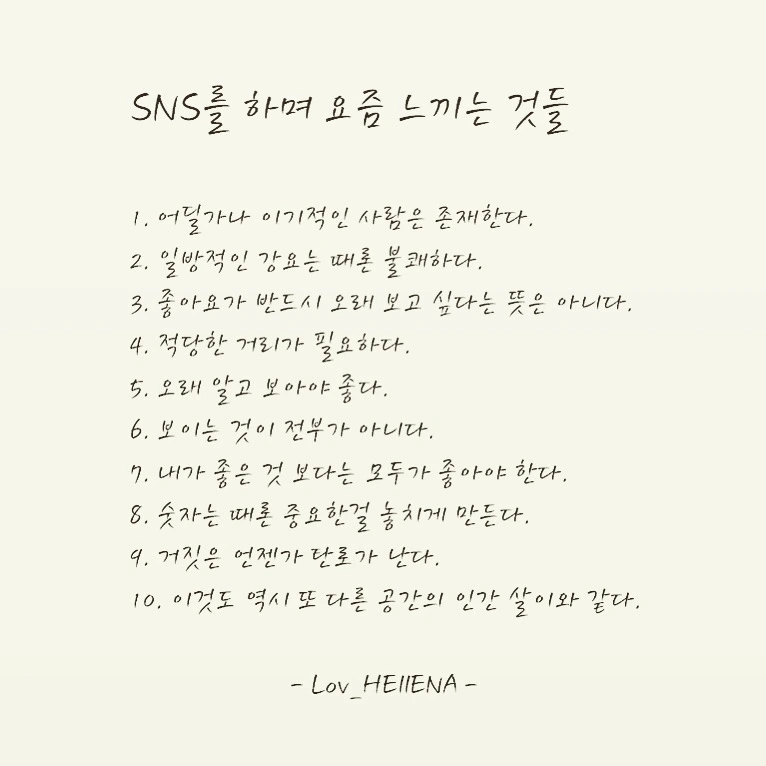 SNS를 하며 요즘 느끼는 것들
1. 어딜가나 이기적인 사람은 존재한다.
2. 일방적인 강요는 때론 불쾌하다.
3. 좋아요가 반드시 오래 보고 싶다는 뜻은 아니다.
4. 적당한 거리가 필요하다.
5. 오래 알고 보아야 좋다.
6. 보이는 것이 전부가 아니다.
7. 내가 좋은 것 보다는 모두가 좋아야 한다.
8. 숫자는 때론 중요한걸 놓치게 만든다.
9. 거짓은 언젠가 탄로가 난다.
10. 이것도 역시 또 다른 공간의 인간 살이와 같다.
- Lov_HEllENA -